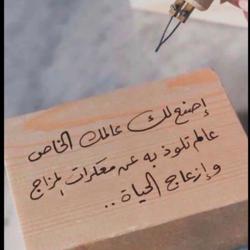 إصنع لك عالمك الخاص
عالم تلوذ به عن معكرات المزاج
وإزعاج الحياة ..